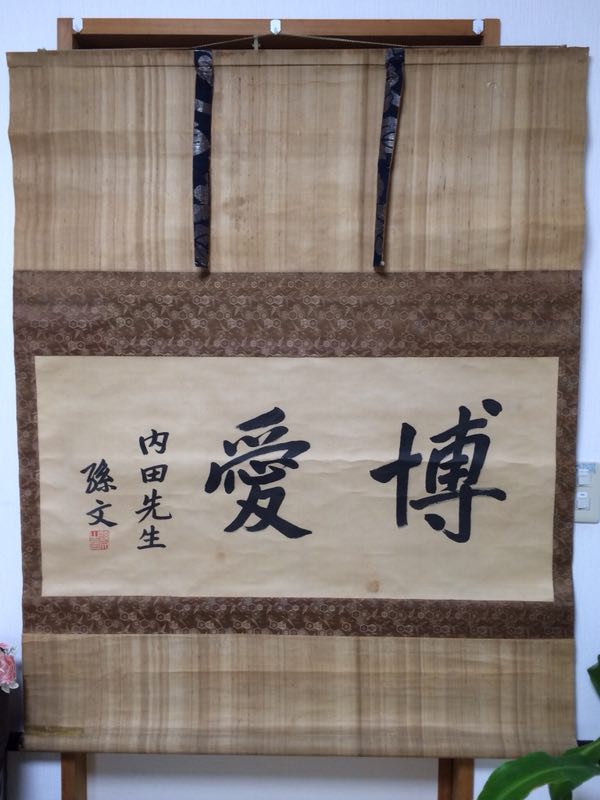 博愛
内田先生
孫文